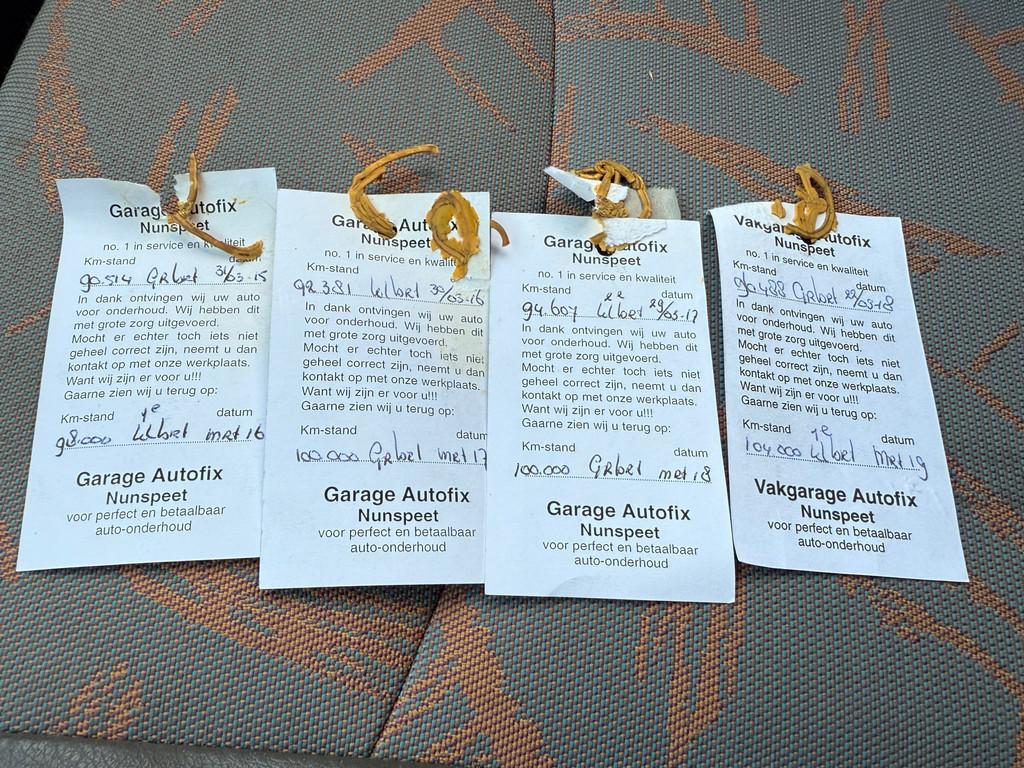 Garage Autofix
Nunspeet
no. 1 in service en kwaliteit
datum
90.514 GRbet 31/03-15
In dank ontvingen wij uw auto
voor onderhoud. Wij hebben dit
met grote zorg uitgevoerd.
Mocht er echter toch iets niet
geheel correct zijn, neemt u dan
kontakt op met onze werkplaats.
Want wij zijn er voor u!!!
Gaarne zien wij u terug op:
Km-stand datum
98.000 1e klbet mrt 16
Garage Autofix
Nunspeet
voor perfect en betaalbaar
auto-onderhoud
Garage Autofix
Nunspeet
no. 1 in service en kwaliteit
Km-stand
92.381 klbet 30/03-16
In dank ontvingen wij uw auto
voor onderhoud. Wij hebben dit
met grote zorg uitgevoerd.
Mocht er echter toch iets niet
geheel correct zijn, neemt u dan
kontakt op met onze werkplaats.
Want wij zijn er voor u!!!
Gaarne zien wij u terug op:
Km-stand datum
100.000 GRbet mrt 17
Garage Autofix
Nunspeet
voor perfect en betaalbaar
auto-onderhoud
Garage Autofix
Nunspeet
no. 1 in service en kwaliteit
Km-stand datum
94.607 2e klbet 29/03-17
In dank ontvingen wij uw auto
voor onderhoud. Wij hebben dit
met grote zorg uitgevoerd.
Mocht er echter toch iets niet
geheel correct zijn, neemt u dan
kontakt op met onze werkplaats.
Want wij zijn er voor u!!!
Gaarne zien wij u terug op:
Km-stand datum
100.000 GRbet mrt 18
Garage Autofix
Nunspeet
voor perfect en betaalbaar
auto-onderhoud
Vakgarage Autofix
Nunspeet
no. 1 in service en kwaliteit
Km-stand datum
GRbet 29/03-18
In dank ontvingen wij uw auto
voor onderhoud. Wij hebben dit
met grote zorg uitgevoerd.
Mocht er echter toch iets niet
geheel correct zijn, neemt u dan
kontakt op met onze werkplaats.
Want wij zijn er voor u!!!
Gaarne zien wij u terug op:
Km-stand datum
104.000 1e klbet mrt 19
Vakgarage Autofix
Nunspeet
voor perfect en betaalbaar
auto-onderhoud